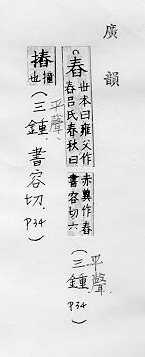 廣韻
○舂
世本曰雍父作
舂呂氏春秋曰
赤冀作舂
書容切六
(平聲.
三鍾.
P34)
摏
撞
也
平聲.
(三鍾.書容切.P34)